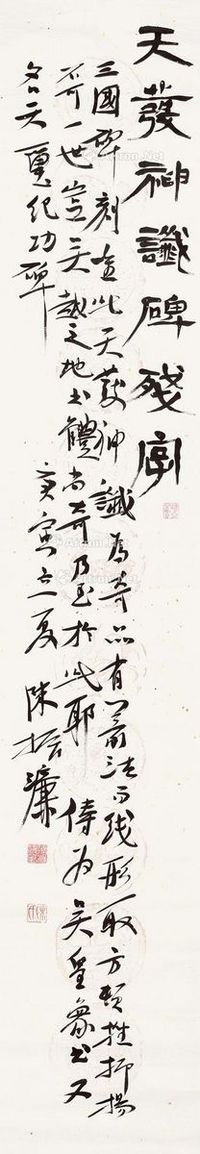 天發神讖碑殘字
三國碑刻此天發神讖為奇品有法而线形取方頓挫抑揚
奇一世豈吴越之地書體尚奇乃至於此耶傳为吴皇象書又
名天璽纪功碑庚寅夏陳振濂